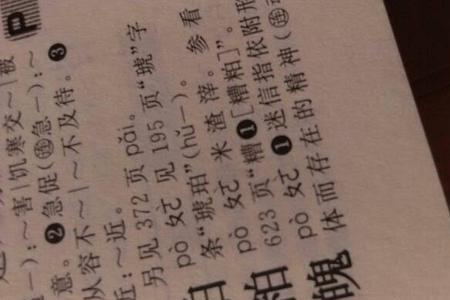 一):～害|饥寒交～|被
意。❷急促(连急一):～
从容不～|～不及待。❸
近:～近。
另见 372 页 pǎi。
pò ㄆㄛˋ 见 195 页“琥”字
条“琥珀”(hǔ一)。
pò ㄆㄛˋ 米渣滓。参看
粕
623 页“糟❶[糟粕]”。
魄 pò ㄆㄛˋ ❶迷信指依附形
体而存在的精神(连
P